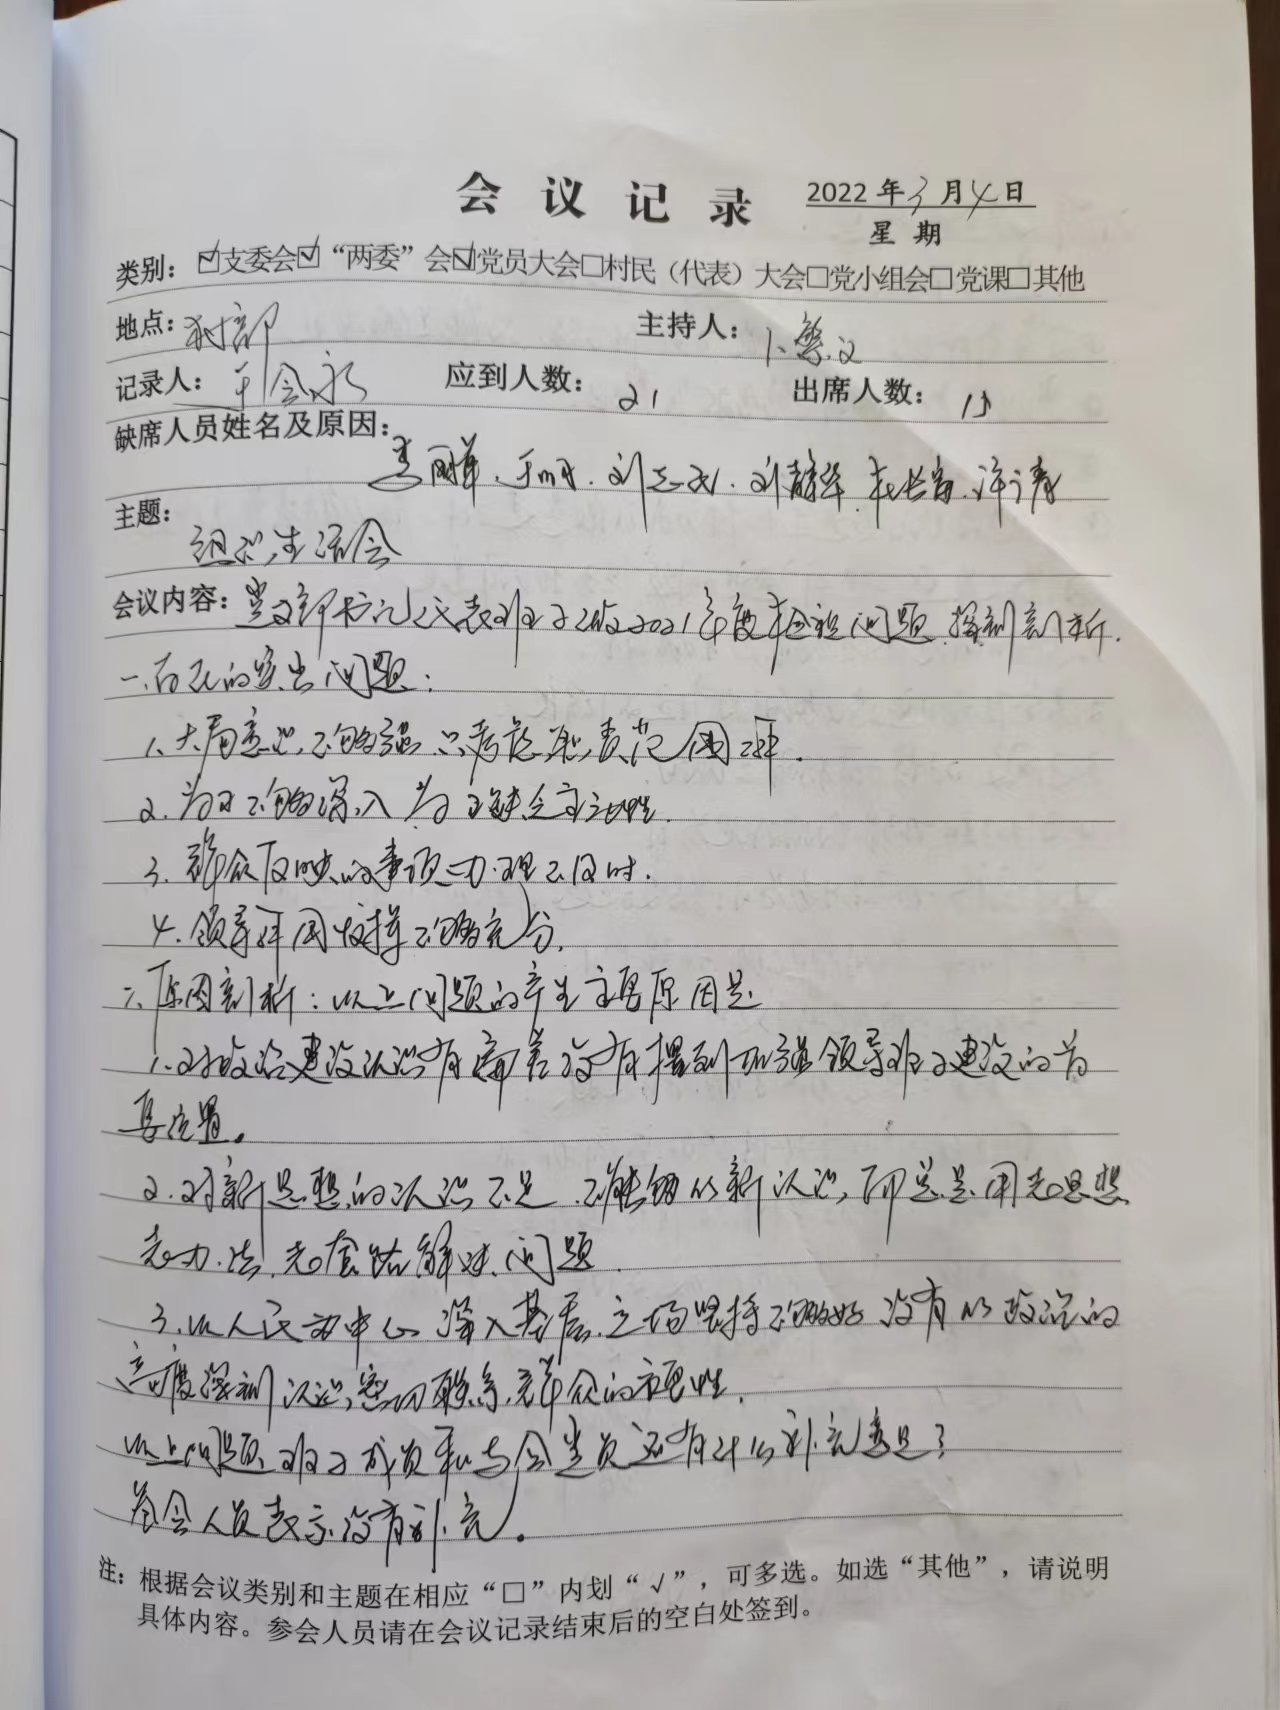 会议记录 2022年3月4日
星期
类别：☑支委会☑“两委”会☑党员大会□村民（代表）大会□党小组会□党课□其他
地点：村部 主持人：卜繁义
记录人：会永 应到人数：21 出席人数：15
缺席人员姓名及原因：
刘志 刘静华
主题：
组织生活会
会议内容：党支部书记代表班子做2021年度检视问题，深刻剖析.
一、存在的突出问题：
1、大局意识不够强，只考虑职责范围
2、为 不够深入 为 缺乏主动性.
3、群众反映的事项办理不及时.
4、领导作用发挥不够充分.
二、原因剖析：以上问题的产生主要原因是
1、对政治建设认识有偏差，没有摆到加强领导班子建设的首
要位置。
2、对新思想的认识不足，不能够从新认识，而总是用老思想
老办法，老套路解决问题.
3、以人民为中心 深入基层，立场坚持不够好，没有从政治的
高度深刻认识，密切联系群众的重要性.
以上问题，班子成员和与会党员还有什么补充意见？
参会人员表示没有补充。
注：根据会议类别和主题在相应“□”内划“√”，可多选。如选“其他”，请说明
具体内容。参会人员请在会议记录结束后的空白处签到。